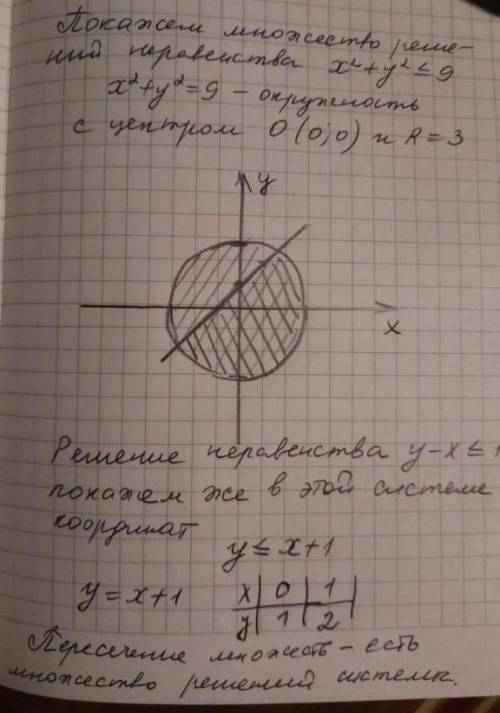 Покажем множество реше-
ний неравенства x²+y² ≤ 9
x²+y²=9 – окружность
с центром O (0;0) и R = 3
y
x
Решение неравенства y–x ≤ 1
покажем же в этой системе
координат
y ≤ x+1
y = x+1
x | 0 | 1
y | 1 | 2
Пересечение множеств – есть
множество решений системы.